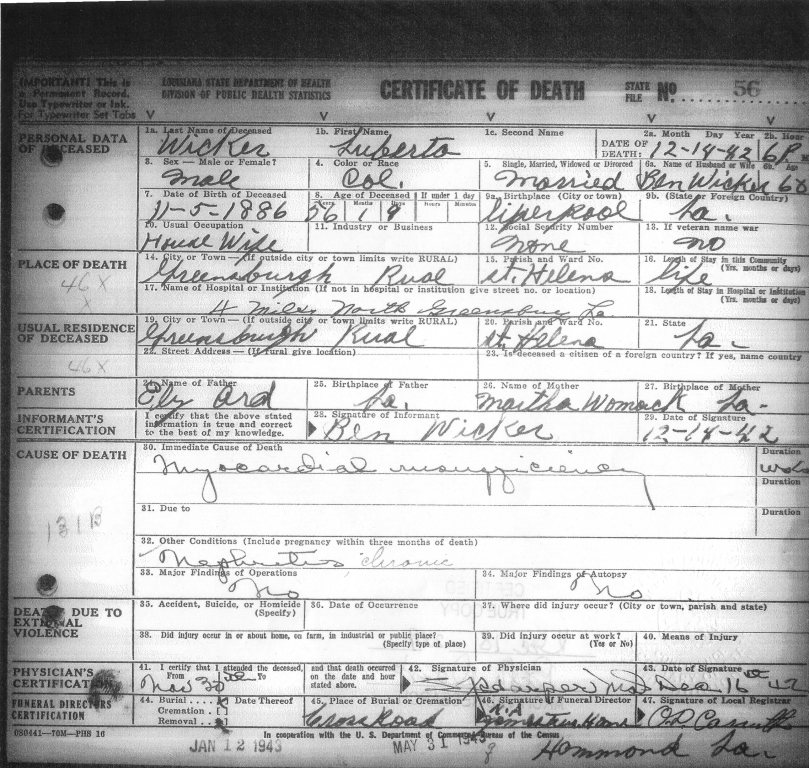 IMPORTANT! This is a Permanent Record. Use Typewriter or Ink. For Typewriter Set Tabs
LOUISIANA STATE DEPARTMENT OF HEALTH
DIVISION OF PUBLIC HEALTH STATISTICS
CERTIFICATE OF DEATH
STATE FILE No. 56
PERSONAL DATA OF DECEASED
1a. Last Name of Deceased Wicker
1b. First Name Luperta
1c. Second Name
2a. Month Day Year DATE OF DEATH: 12-14-42
2b. Hour 6P
3. Sex — Male or Female? Male
4. Color or Race Col.
5. Single, Married, Widowed or Divorced Married
6a. Name of Husband or Wife Ben Wicker
6b. Age
7. Date of Birth of Deceased 11-5-1886
8. Age of Deceased Years Months Days 56 1 9
If under 1 day Hours Minutes
9a. Birthplace (City or town) Liverpool
9b. (State or Foreign Country) La.
10. Usual Occupation House Wife
11. Industry or Business
12. Social Security Number None
13. If veteran name war no
PLACE OF DEATH
46 X
X
14. City or Town — (If outside city or town limits write RURAL) Greensburgh Rual
15. Parish and Ward No. St. Helena
16. Length of Stay in this Community (Yrs. months or days) life
17. Name of Hospital or Institution (If not in hospital or institution give street no. or location)
4 Miles North Greensburg La
18. Length of Stay in Hospital or Institution (Yrs. months or days)
USUAL RESIDENCE OF DECEASED
46 X
19. City or Town — (If outside city or town limits write RURAL) Greensburgh Rual
20. Parish and Ward No. St. Helena
21. State La.
22. Street Address — (If rural give location)
23. Is deceased a citizen of a foreign country? If yes, name country
PARENTS
24. Name of Father Ely Ard
25. Birthplace of Father La.
26. Name of Mother Martha Womack
27. Birthplace of Mother La.
INFORMANT'S CERTIFICATION
I certify that the above stated information is true and correct to the best of my knowledge.
28. Signature of Informant Ben Wicker
29. Date of Signature 12-14-42
CAUSE OF DEATH
131B
30. Immediate Cause of Death Myocardial insufficiency
Duration wks
Duration
31. Due to
Duration
32. Other Conditions (Include pregnancy within three months of death)
Nephritis, chronic
33. Major Findings of Operations No
34. Major Findings of Autopsy No
DEATH DUE TO EXTERNAL VIOLENCE
35. Accident, Suicide, or Homicide (Specify)
36. Date of Occurrence
37. Where did injury occur? (City or town, parish and state)
38. Did injury occur in or about home, on farm, in industrial or public place? (Specify type of place)
39. Did injury occur at work? (Yes or No)
40. Means of Injury
PHYSICIAN'S CERTIFICATION
41. I certify that I attended the deceased, From To Nov 30th
and that death occurred on the date and hour stated above.
42. Signature of Physician
43. Date of Signature Dec 16th 42
FUNERAL DIRECTORS CERTIFICATION
44. Burial [X] Date Thereof
Cremation [ ]
Removal [ ]
45. Place of Burial or Cremation Cross Road
46. Signature of Funeral Director
47. Signature of Local Registrar
030441—70M—PHS 16
In cooperation with the U. S. Department of Commerce, Bureau of the Census
JAN 12 1943
MAY 31 1943
Hammond La.